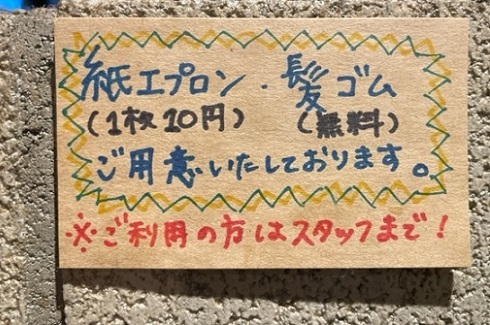 紙エプロン・髪ゴム
(1枚10円) (無料)
ご用意いたしております。
※ご利用の方はスタッフまで!